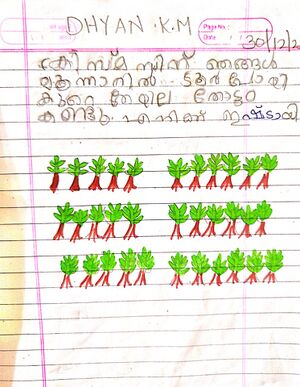 DHYAN .K.M
Page No.:
Date
30/12/2
ക്രിസ്മസ്സിന് ഞങ്ങൾ
മൂന്നാറിൽ ടൂർ പോയി
കുറെ തേയില തോട്ടം
കണ്ടു. എനിക്ക് ഇഷ്ടായി